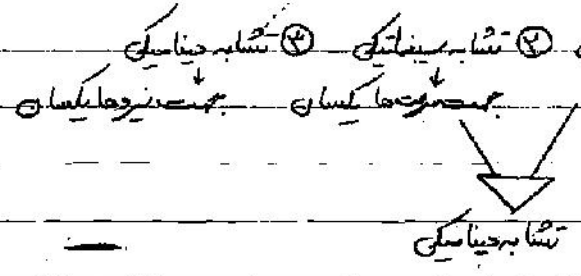 ② تشابه سینماتیکی ③ تشابه دینامیکی
جهت سرعت ها یکسان جهت نیروها یکسان
تشابه دینامیکی